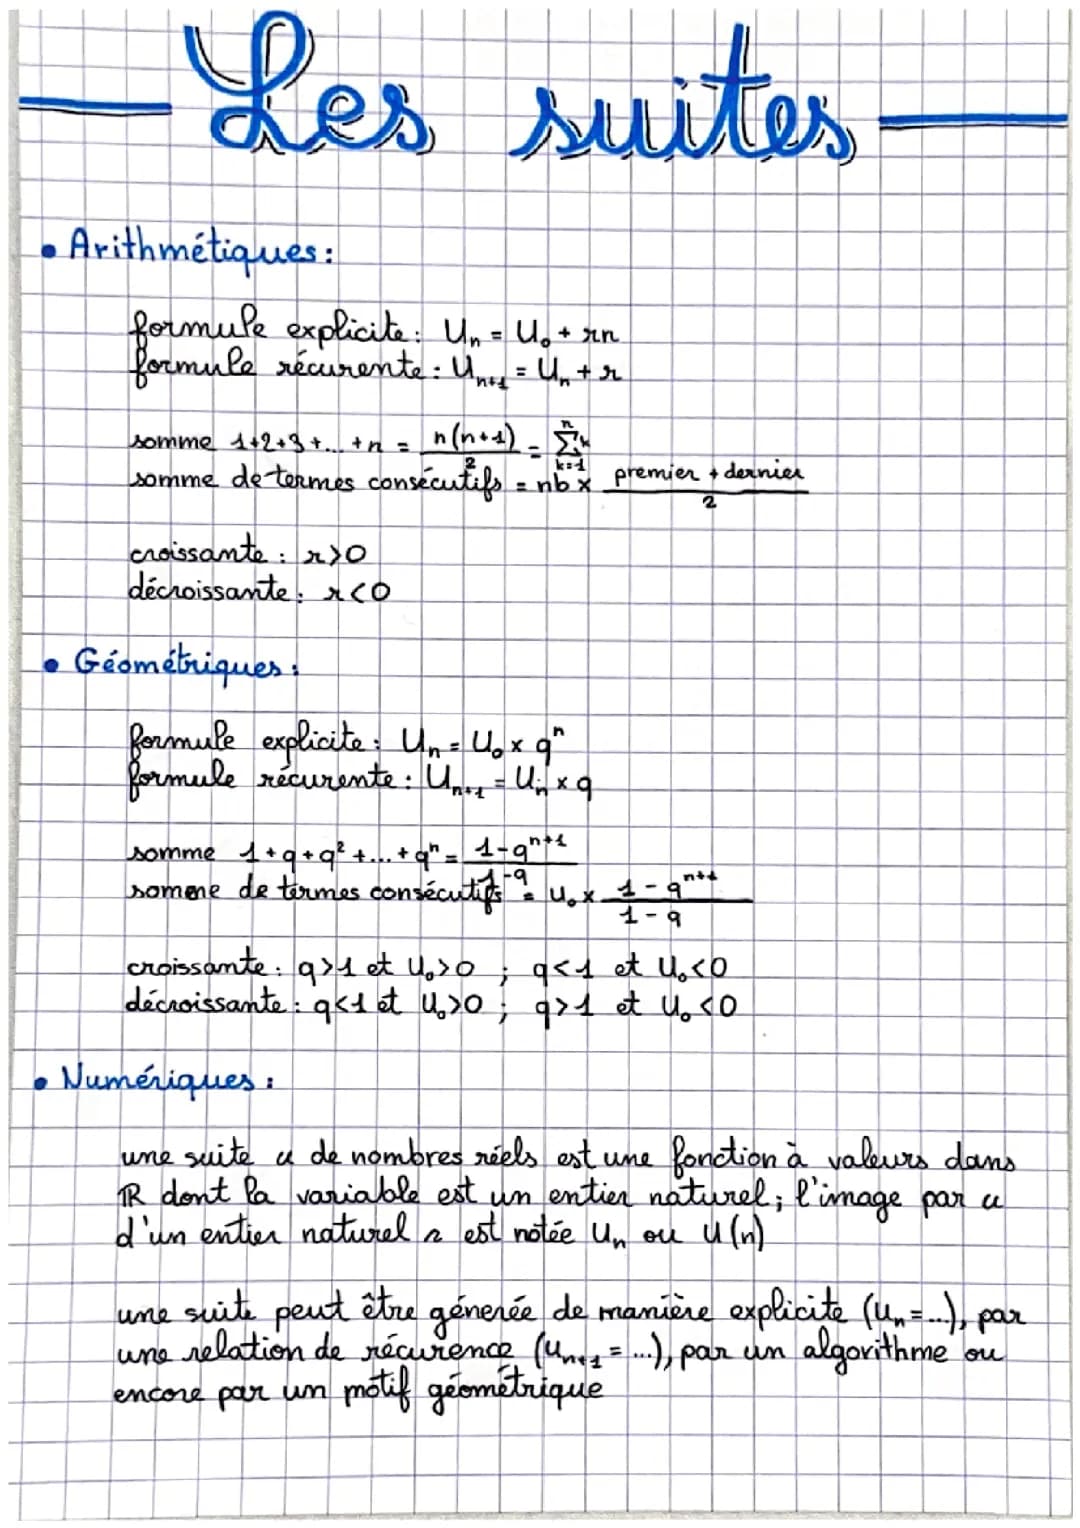 Les suites
• Arithmétiques :
formule explicite : Un = U₀ + rn
formule récurente : Un+1 = Un + r
somme 1+2+3+...+n = n(n+1)/2 = Σ(k=1 → n) k
somme de termes consécutifs = nb × (premier + dernier)/2
croissante : r>0
décroissante : r<0
• Géométriques :
formule explicite : Un = U₀ × qⁿ
formule récurente : Un+1 = Un × q
somme 1+q+q²+...+qⁿ = (1-qⁿ⁺¹)/(1-q)
somme de termes consécutifs = U₀ × (1-qⁿ⁺¹)/(1-q)
croissante : q>1 et U₀>0 ; q<1 et U₀<0
décroissante : q<1 et U₀>0 ; q>1 et U₀<0
• Numériques :
une suite u de nombres réels est une fonction à valeurs dans
ℝ dont la variable est un entier naturel ; l'image par u
d'un entier naturel n est notée Un ou U(n)
une suite peut être génerée de manière explicite (Un=...), par
une relation de récurence (Un+1 = ...), par un algorithme ou
encore par un motif géométrique